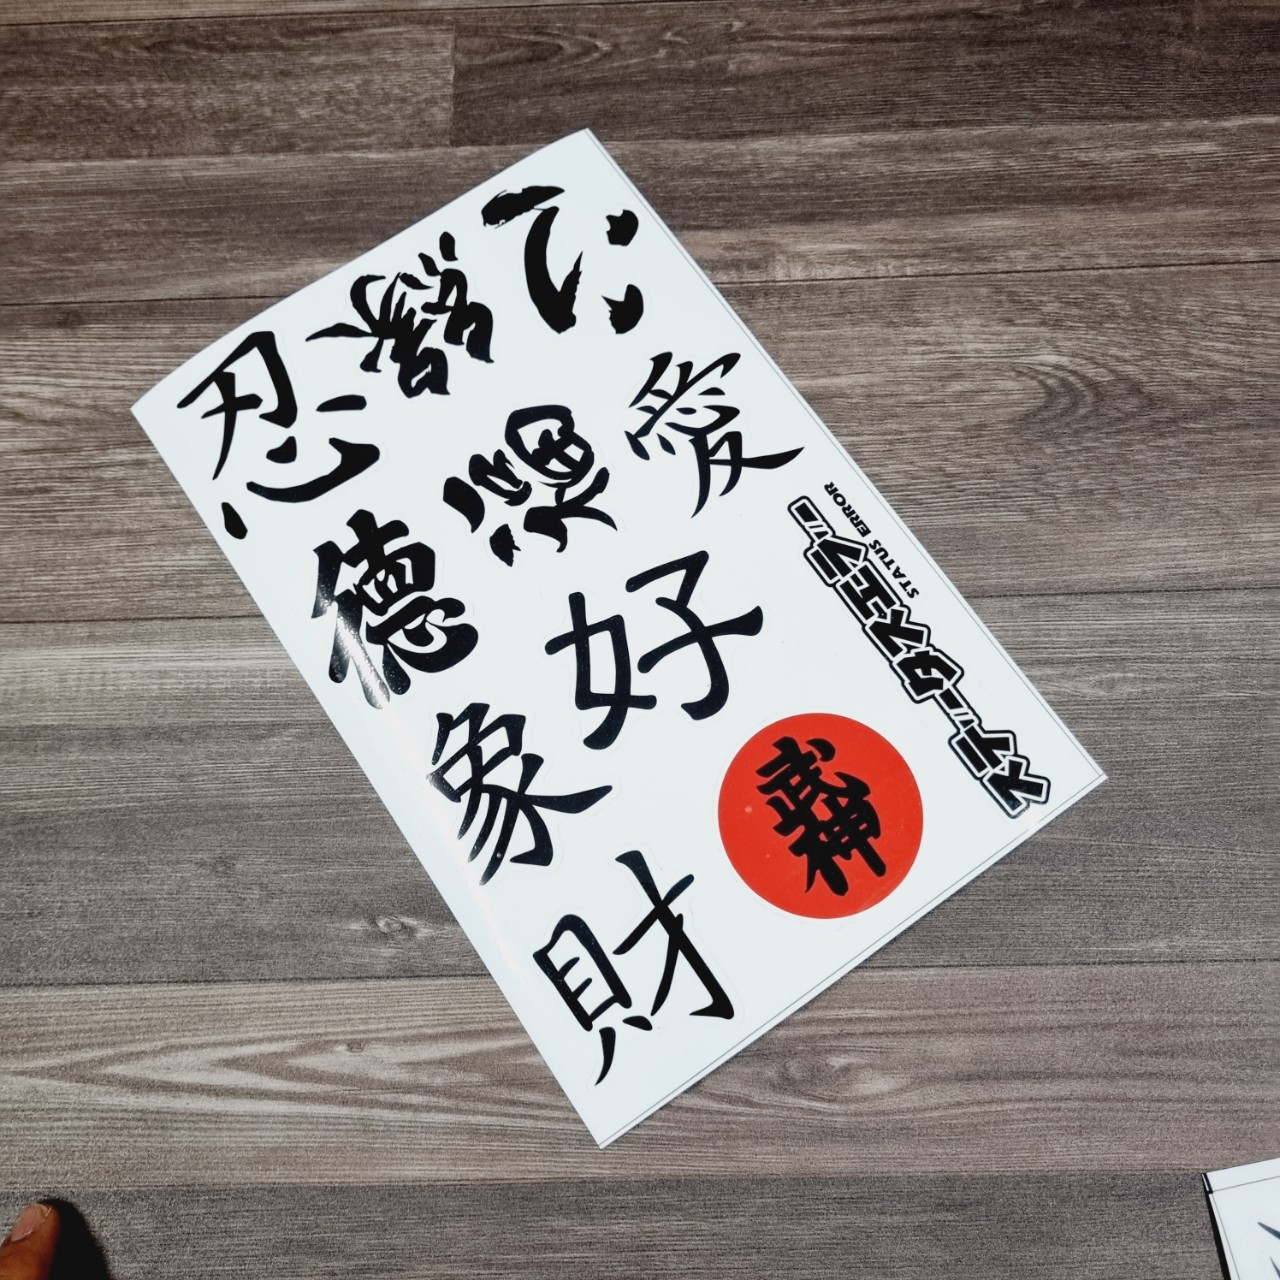 忍
心
愛
德
好
象
財
武神
ステータスエラー
STATUS ERROR